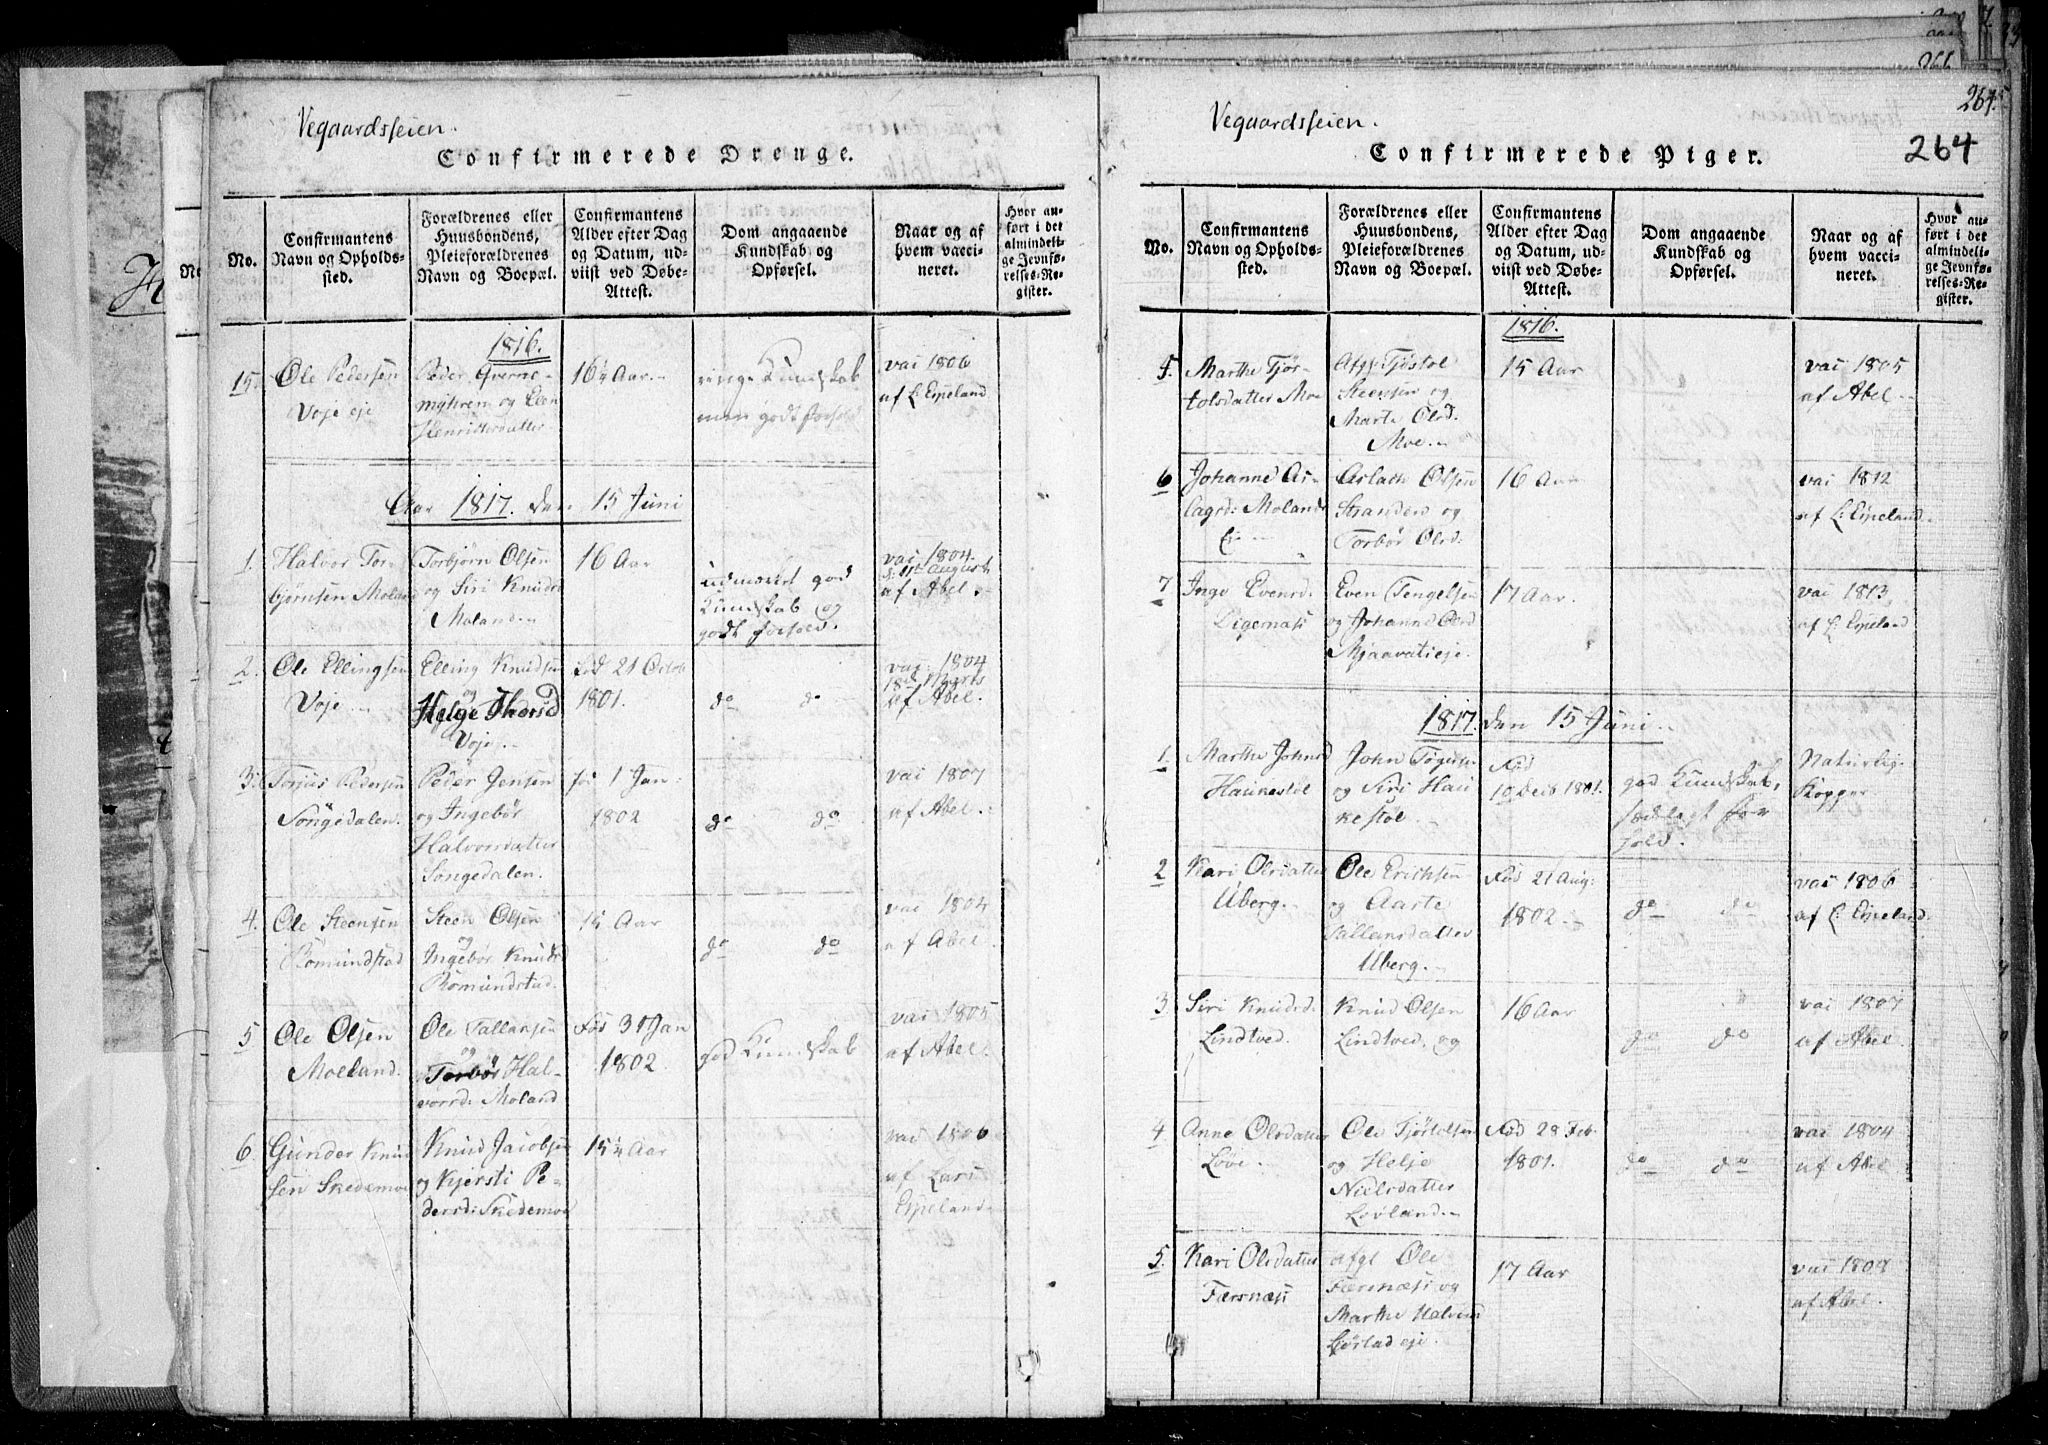 Vegaardsheien.
Confirmerede Drenge.
No.
Confirmantens
Navn og Opholds-
sted.
Forældrenes eller
Huusbondens,
Pleieforældrenes
Navn og Boepæl.
Confirmantens
Alder efter Dag
og Datum, ud-
viist ved Døbe-
Attest.
Dom angaaende
Kundskab og
Opførsel.
Naar og af
hvem vacci-
neret.
Hvor an-
ført i det
almindeli-
ge Jevnfø-
relses-Re-
gister.
1816.
15.
Ole Pedersen
Voje eje
Peder Qverne-
myhren og Elen
16½ Aar.
ringe Kundskab
men godt forhold
vac 1806
af L. Espeland
Aar 1817. den 15 Juni
1.
Halvor Tor-
bjørnsen Moland
Torbjørn Olsen
og Siri Knudsd
Moland
16 Aar
udmærket god
Kundskab og
godt forhold.
vac 1804
d: 11te August
af Abel
2.
Ole Ellingsen
Voje
Elling Knudsen
og
Helge Thorsd
Voje
fød 21 Octob
1801.
do do
vac: 1804
18d Marts
af Abel.
3.
Torjus Pedersen
Songedalen.
Peder Jensen
og Ingebør
Halvorsdatter
Songedalen.
fød 1 Jan:
1802
do do
vac 1807
af Abel.
4.
Ole Steensen
Romundstad
Steen Olsen
og
Ingebør Knudsd
Romundstad.
15 Aar
do do
vac 1804
af Abel
5
Ole Olsen
Moeland.
Ole Tallaksen
og
Torbør Hal-
vorsd: Moland
fød 31 Jan
1802
god Kundskab
vac 1805
af Abel.
6.
Gunder Knud
sen Skedemoe
Knud Jacobsen
og Kjersti Pe-
dersd: Skedemoe
15½ Aar
vac 1806
af Lars
Espeland
264
264
Vegaardsheien.
Confirmerede Piger.
No.
Confirmantens
Navn og Opholds-
sted.
Forældrenes eller
Huusbondens,
Pleieforældrenes
Navn og Boepæl.
Confirmantens
Alder efter Dag
og Datum, ud-
viist ved Døbe-
Attest.
Dom angaaende
Kundskab og
Opførsel.
Naar og af
hvem vacci-
neret.
Hvor an-
ført i det
almindeli-
ge Jevnfø-
relses-Re-
gister.
1816.
5.
Marthe Tjøs-
tolsdatter Moe
Afg: Tjøstol
Steensen og
Marte Olsd.
Moe.
15 Aar
vac 1805
af Abel
6
Johanne As-
lagsd: Molands
Aslach Olsen
Stranden og
Torbør Olsd:
16 Aar
vac 1812
af L: Espeland
7
Inge Evensd.
Digernæs
Even Tengelsen
og Johanne Olsd
Mjaavatseje.
17 Aar.
vac 1813
af L: Espeland
1817. den 15 Juni
1.
Marthe Johnsd
Haukestøl
John
og Siri Hau
kestøl
Fød
10 Decb 1801.
god Kundskab,
sædeligt For
hold.
Naturlig
Kopper
2
Kari Olsdatter
Uberg.
Ole Erichsen
og Aaste
Tallaksdatter
Uberg.
Fød 21 Aug:
1802
do do
vac 1806
af L: Espeland.
3
Siri Knudsd.
Lindtved.
Knud Olsen
Lindtved, og
16 Aar
do do
vac 1807
af Abel
4
Anne Olsdatter
Løve.
Ole Tjøstolsen
og Helje
Nielsdatter
Lovland
Fød 28 Feb
1801.
do do
vac 1804
af Abel
5.
Kari Olsdatter
Færsnæs
Afg: Ole
Færsnæs og
Marthe Halvorsd
17 Aar
vac 1808
af Abel.